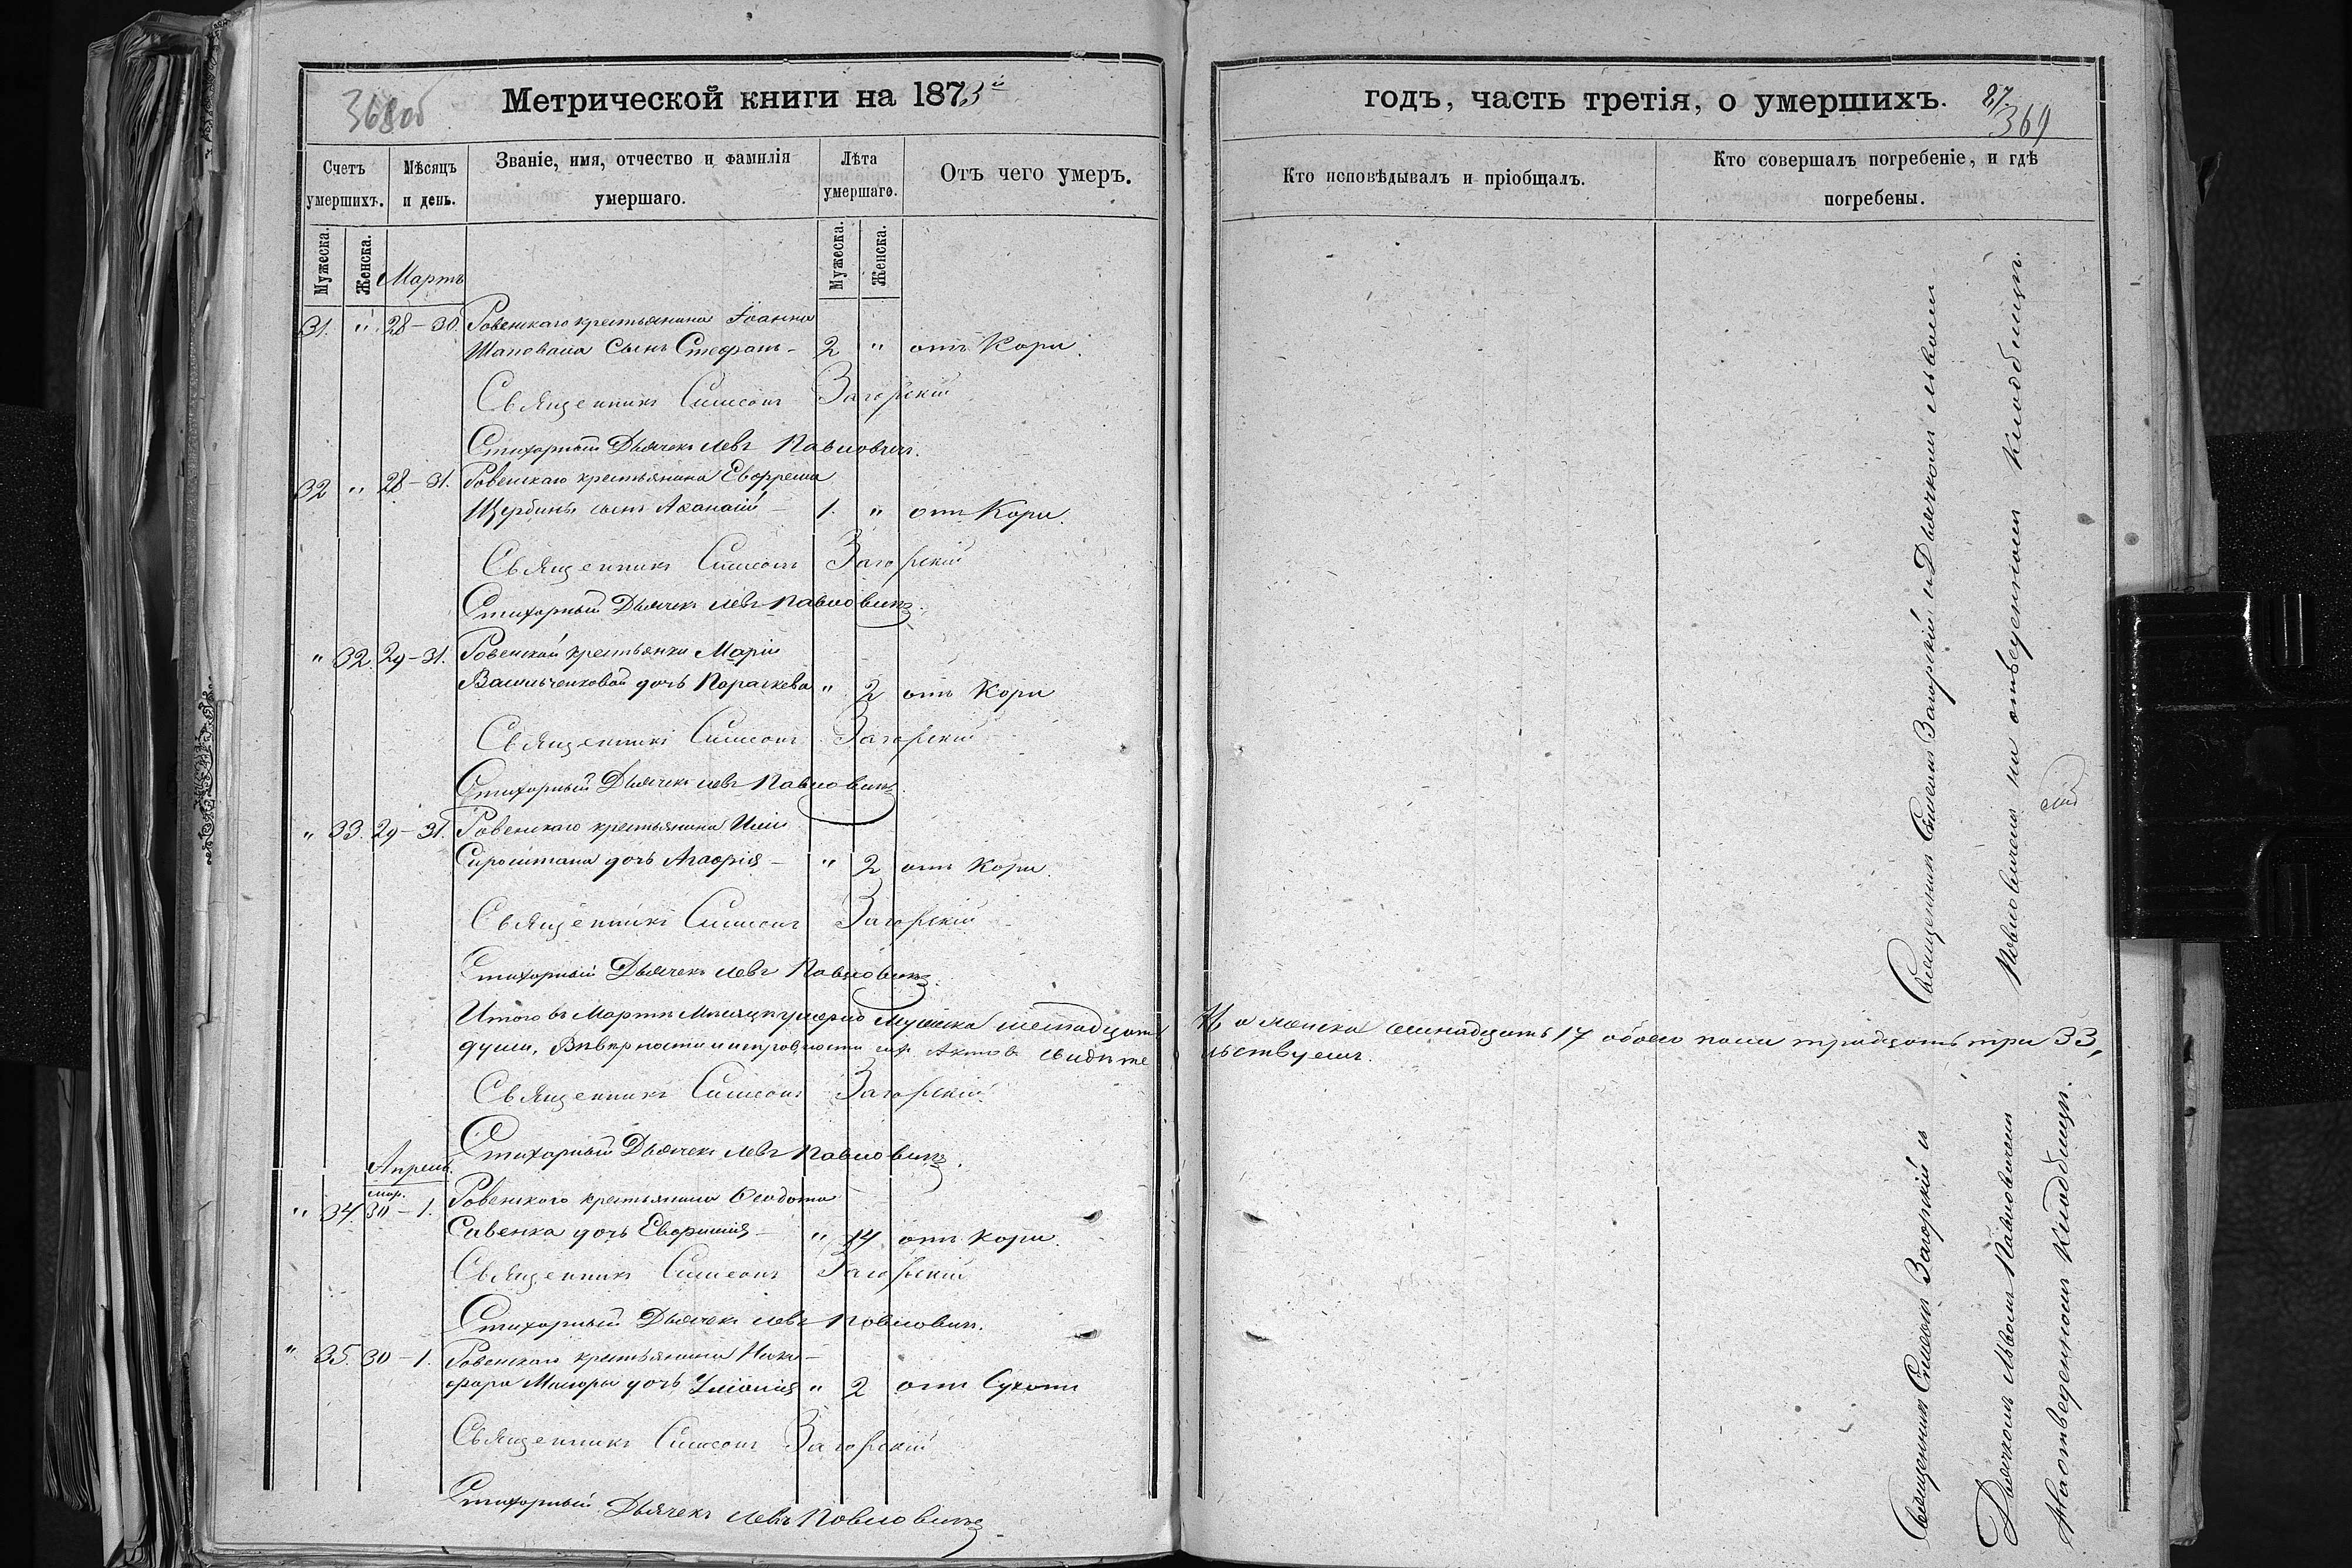 368об
Метрической книги на 1873й
Счетъ умершихъ.
Мѣсяцъ и день.
Званіе, имя, отчество и фамилія умершаго.
Лѣта умершаго.
Отъ чего умеръ.
Мужеска.
Женска.
Мартъ
Мужеска.
Женска.
31. " 28-30. Ровенскаго крестьянина Іоанна
Шаповала сынъ Стефанъ - 2 " отъ Кори.
Священникъ Симеонъ Загорскій
Стихарный Дьячекъ Левъ Павловичъ.
32 " 28-31. Ровенскаго крестьянина Евфрема
Щербины сынъ Аѳанасій - 1. " отъ Кори.
Священникъ Симеонъ Загорскій
Стихарный Дьячекъ Левъ Павловичъ.
" 32. 29-31. Ровенской крестьянки Маріи
Васильченковой дочь Параскева " 2 отъ Кори
Священникъ Симеонъ Загорскій
Стихарный Дьячекъ Левъ Павловичъ.
" 33. 29-31. Ровенскаго крестьянина Иліи
Сироштана дочь Агафія - " 2 отъ Кори.
Священникъ Симеонъ Загорскій
Стихарный Дьячекъ Левъ Павловичъ.
Итого въ Мартѣ Мѣсяцѣ умерло Мужеска шестнадцать
души, Въ вѣрности и исправности сихъ Актовъ свидѣте
Священникъ Симеонъ Загорскій
Стихарный Дьячекъ Левъ Павловичъ.
Апрель.
мар.
" 34. 30-1. Ровенскаго крестьянина Ѳеодота
Савенка дочь Евфимія - " 14 отъ Кори.
Священникъ Симеонъ Загорскій
Стихарный Дьячекъ Левъ Павловичъ.
" 35. 30-1. Ровенскаго крестьянина Ники-
фора дочь " 2 отъ Сухоти
Священникъ Симеонъ Загорскій
Стихарный Дьячекъ Левъ Павловичъ.
годъ, часть третія, о умершихъ.
87
369
Кто исповѣдывалъ и пріобщалъ.
Кто совершалъ погребеніе, и гдѣ погребены.
Священникъ Симеонъ Загорскій и Дьячкомъ Львомъ
Павловичемъ на отведенномъ Кладбищѣ.
а женска семнадцать 17 обоего пола тридцать три 33,
льствуемъ.
Священникъ Симеонъ Загорскій съ
Дьячкомъ Львомъ Павловичемъ
на отведенномъ Кладбищѣ.